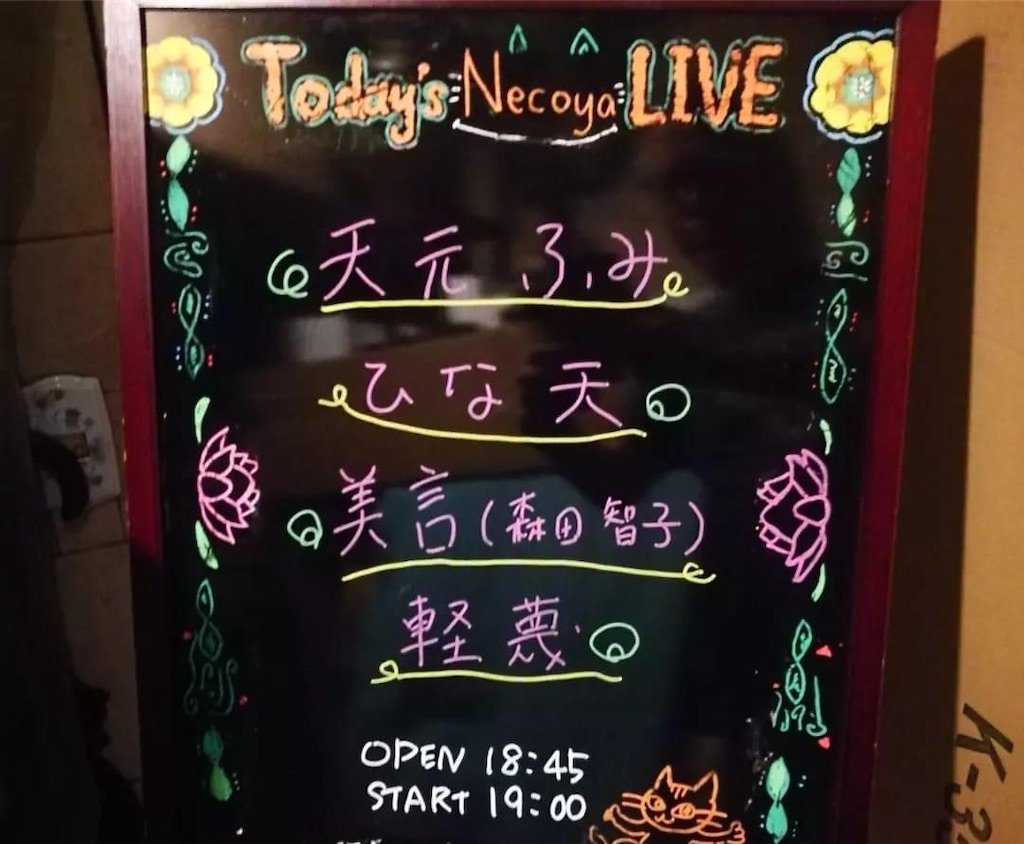 Today's Necoya LIVE
天元ふみ
ひな天
美言(森田智子)
軽蔑
OPEN 18:45
START 19:00